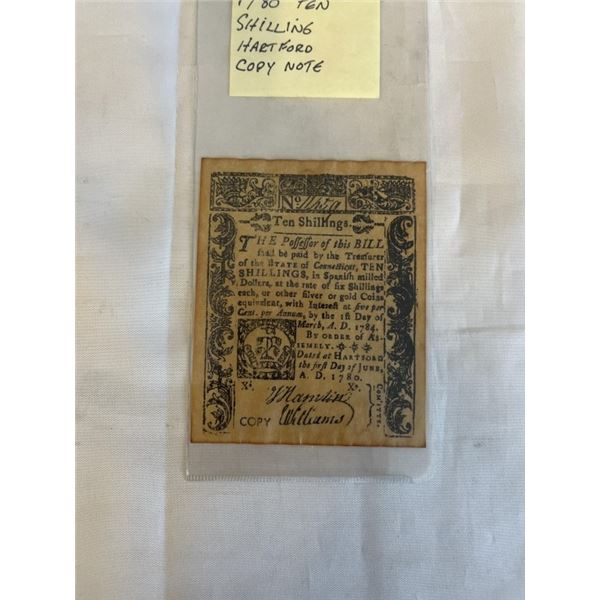 1780 TEN
SHILLING
HARTFORD
COPY NOTE
No.
Ten Shillings.
THE Possessor of this BILL
shall be paid by the Treasurer
of the STATE of Connecticut, TEN
SHILLINGS, in Spanish milled
Dollars, at the rate of six Shillings
each, or other silver or gold Coins
equivalent, with Interest at five per
Cent. per Annum, by the 1st Day of
March, A. D. 1784.
BY ORDER of AS-
SEMBLY.
Dated at HARTFORD
the first Day of JUNE,
A. D. 1780.
Xs. Xs.
J Hamlin
COPY Williams
COM'TTE.